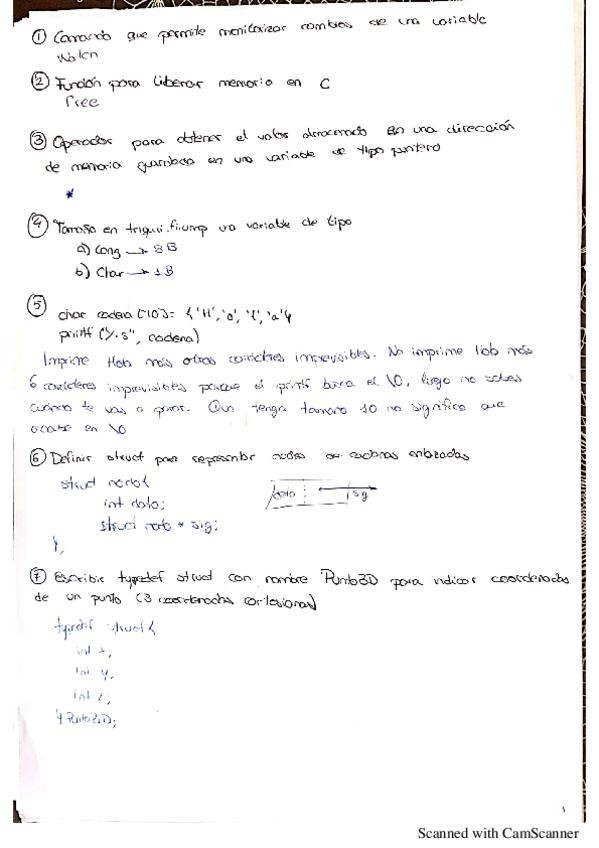 ① Comando que permite monitorizar cambios de una variable
Watch
② Función para liberar memoria en C
Free
③ Operador para obtener el valor almacenado en una dirección
de memoria guardada en una variable de tipo puntero
*
④ Tamaño en una variable de tipo
a) Long → 8B
b) Char → 1B
⑤
char cadena [10] = {'H','o','l','a'}
printf ("%s", cadena)
Imprime Hola más otros caracteres imprevisibles. No imprime Hola más
6 caracteres imprevisibles porque el printf busca el \0, luego no sabes
cuando te vas a parar. Que tenga tamaño 10 no significa que
acabe en \0
⑥ Definir struct para representar nodos de enlazadas
struct nodo{
int dato;
struct nodo * sig;
};
dato sig
⑦ Escribir typedef struct con nombre Punto3D para indicar coordenadas
de un punto (3 coordenadas cartesianas)
typedef struct{
int x;
int y;
int z;
} Punto3D;
1
Scanned with CamScanner